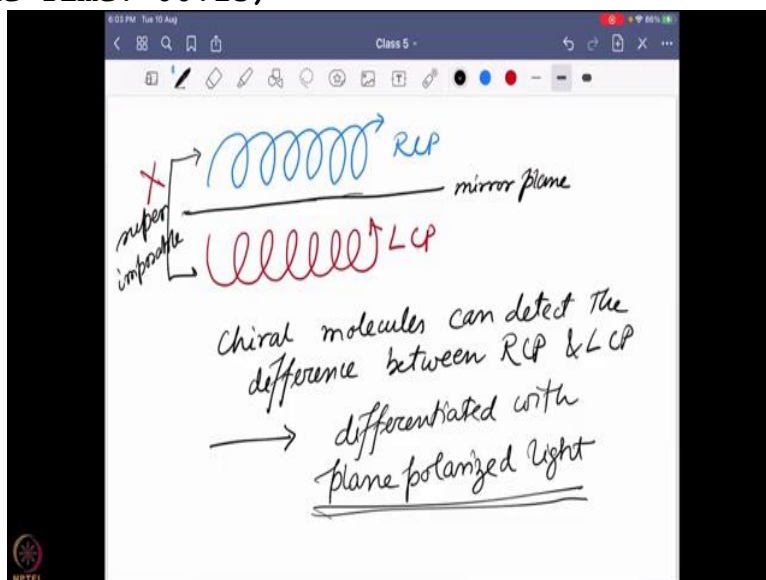 6:03 PM Tue 10 Aug
66%
Class 5
RCP
mirror plane
X
super
imposable
LCP
Chiral molecules can detect the
difference between RCP & LCP
→ differentiated with
plane polarized light
NPTEL